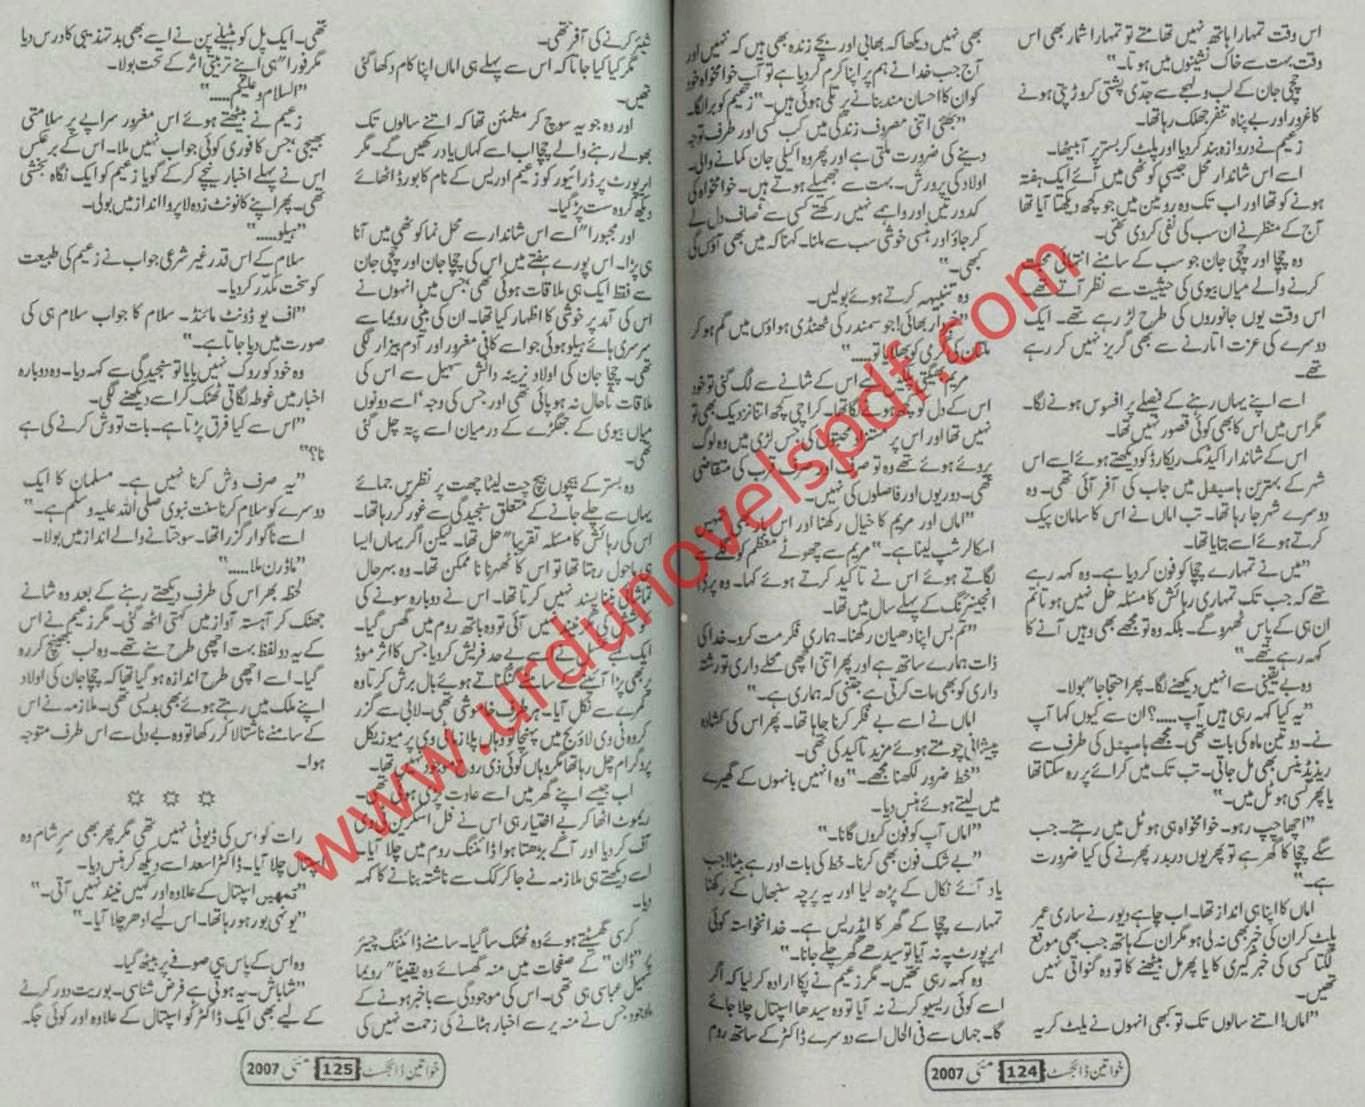 اس وقت تمہارا ہاتھ نہیں تھامتے تو تمہارا شمار بھی اس
وقت بہت سے خاک نشینوں میں ہوتا۔"
چچی جان کے لب و لہجے سے جدی پشتی کروڑ پتی ہونے
کا غرور اور بے پناہ تنفر جھلک رہا تھا۔
زعیم نے دروازہ بند کر دیا اور پلٹ کر بستر پر آ بیٹھا۔
اسے اس شاندار محل جیسی کوٹھی میں آئے ایک ہفتہ
ہونے کو تھا اور اب تک وہ روٹین میں جو کچھ دیکھتا آیا تھا
آج کے منظر نے ان سب کی نفی کر دی تھی۔
وہ چچا اور چچی جان جو سب کے سامنے انتہائی محبت
کرنے والے میاں بیوی کی حیثیت سے نظر آتے تھے
اس وقت یوں جانوروں کی طرح لڑ رہے تھے۔ ایک
دوسرے کی عزت اتارنے سے بھی گریز نہیں کر رہے
تھے۔
اسے اپنے یہاں رہنے کے فیصلے پر افسوس ہونے لگا۔
مگر اس میں اس کا بھی کوئی قصور نہیں تھا۔
اس کے شاندار اکیڈمک ریکارڈ کو دیکھتے ہوئے اسے اس
شہر کے بہترین ہاسپٹل میں جاب کی آفر آئی تھی۔ وہ
دوسرے شہر جا رہا تھا۔ تب اماں نے اس کا سامان پیک
کرتے ہوئے اسے بتایا تھا۔
"میں نے تمہارے چچا کو فون کر دیا ہے۔ وہ کہہ رہے
تھے کہ جب تک تمہاری رہائش کا مسئلہ حل نہیں ہوتا تم
ان ہی کے پاس ٹھہرو گے۔ بلکہ وہ تو مجھے بھی وہیں آنے کا
کہہ رہے تھے۔"
وہ بے یقینی سے انہیں دیکھنے لگا۔ پھر احتجاجاً بولا۔
"یہ کیا کہہ رہی ہیں آپ.....؟ ان سے کیوں کہا آپ
نے۔ دو تین ماہ کی بات تھی۔ مجھے ہاسپٹل کی طرف سے
ریزیڈینس بھی مل جاتی۔ تب تک میں کرائے پر رہ سکتا تھا
یا پھر کسی ہوٹل میں۔"
"اچھا چپ رہو۔ خوامخواہ ہی ہوٹل میں رہتے۔ جب
سگے چچا کا گھر ہے تو پھر یوں در بدر پھرنے کی کیا ضرورت
ہے۔"
اماں کا اپنا ہی انداز تھا۔ اب چاہے دیور نے ساری عمر
پلٹ کر ان کی خبر بھی نہ لی ہو مگر ان کے ہاتھ جب بھی موقع
لگتا کسی کی خبر گیری کا یا پھر مل بیٹھنے کا تو وہ گنواتی نہیں
تھیں۔
"اماں! اتنے سالوں تک تو کبھی انہوں نے پلٹ کر یہ
بھی نہیں دیکھا کہ بھابی اور بچے زندہ بھی ہیں کہ نہیں اور
آج جب خدا نے ہم پر اپنا کرم کر دیا ہے تو آپ خوامخواہ خود
کو ان کا احسان مند بنانے پر تلی ہوئی ہیں۔" زعیم کو برا لگا۔
"بھئی اتنی مصروف زندگی میں کب کسی اور طرف توجہ
دینے کی ضرورت ملتی ہے اور پھر وہ اکیلی جان کمانے والی۔
اولاد کی پرورش۔ بہت سے جھمیلے ہوتے ہیں۔ خوامخواہ کی
کدورتیں اور واہمے نہیں رکھتے کسی سے' صاف دل لے
کر جاؤ اور ہنسی خوشی سب سے ملنا۔ کہنا کہ میں بھی آؤں گی
کبھی۔"
وہ تنبیہہ کرتے ہوئے بولیں۔
"خبردار بھائی! جو سمندر کی ٹھنڈی ہواؤں میں گم ہو کر
ملتان کی گرمی کو بھلایا تو....."
مریم بھیگی لیے اس کے شانے سے لگ گئی تو خود
اس کے دل کو کچھ ہونے لگا تھا۔ کراچی کچھ اتنا نزدیک بھی تو
نہیں تھا اور اس پر مستزاد محبتوں کی جس لڑی میں وہ لوگ
پروئے ہوئے تھے وہ تو صرف اور صرف قرب کی متقاضی
تھی۔ دوریوں اور فاصلوں کی نہیں۔
"اماں اور مریم کا خیال رکھنا اور اس بار بھی
اسکالر شپ لینا ہے۔" مریم سے چھوٹے معظم کو گلے
لگاتے ہوئے اس نے تاکید کرتے ہوئے کہا۔ وہ
انجینئرنگ کے پہلے سال میں تھا۔
"تم بس اپنا دھیان رکھنا۔ ہماری فکر مت کرو۔ خدا کی
ذات ہمارے ساتھ ہے اور پھر اتنی اچھی محلے داری تو رشتہ
داری کو بھی مات کرتی ہے جتنی کہ ہماری ہے۔"
اماں نے اسے بے فکر کرنا چاہا تھا۔ پھر اس کی کشادہ
پیشانی چومتے ہوئے مزید تاکید کی تھی۔
"خط ضرور لکھنا مجھے۔" وہ انہیں بانہوں کے گھیرے
میں لیتے ہوئے ہنس دیا۔
"اماں آپ کو فون کروں گا نا۔"
"بے شک فون بھی کرنا۔ خط کی بات اور ہے بیٹا! جب
یاد آئے نکال کے پڑھ لیا اور یہ پرچہ سنبھال کے رکھنا
تمہارے چچا کے گھر کا ایڈریس ہے۔ خدانخواستہ کوئی
ایرپورٹ پہ نہ آیا تو سیدھے گھر چلے جانا۔"
وہ کہہ رہی تھیں۔ مگر زعیم نے پکا ارادہ کر لیا کہ اگر
اسے کوئی ریسیو کرنے نہ آیا تو وہ سیدھا اسپتال چلا جائے
گا۔ جہاں سے فی الحال اسے دوسرے ڈاکٹر کے ساتھ روم
خواتین ڈائجسٹ 124 مئی 2007
شیئر کرنے کی آفر تھی۔
مگر کیا کیا جاتا کہ اس سے پہلے ہی اماں اپنا کام دکھا گئی
تھیں۔
اور وہ جو یہ سوچ کر مطمئن تھا کہ اتنے سالوں تک
بھولے رہنے والے چچا اب اسے کہاں یاد رکھیں گے۔ مگر
ایرپورٹ پر ڈرائیور کو زعیم ادریس کے نام کا بورڈ اٹھائے
دیکھ کر وہ سست پڑ گیا۔
اور مجبوراً" اسے اس شاندار سے محل نما کوٹھی میں آنا
ہی پڑا۔ اس پورے ہفتے میں اس کی چچا جان اور چچی جان
سے فقط ایک ہی ملاقات ہوئی تھی' جس میں انہوں نے
اس کی آمد پر خوشی کا اظہار کیا تھا۔ ان کی بیٹی رویما سے
سرسری ہائے ہیلو ہوئی جو اسے کافی مغرور اور آدم بیزار لگی
تھی۔ چچا جان کی اولاد نرینہ دانش سہیل سے اس کی
ملاقات تاحال نہ ہو پائی تھی اور جس کی وجہ' اسے دونوں
میاں بیوی کے جھگڑے کے درمیان اسے پتہ چل گئی
تھی۔
وہ بستر کے بیچوں بیچ چت لیٹا چھت پر نظریں جمائے
یہاں سے چلے جانے کے متعلق سنجیدگی سے غور کر رہا تھا۔
اس کی رہائش کا مسئلہ تقریباً" حل تھا۔ لیکن اگر یہاں ایسا
ہی ماحول رہتا تھا تو اس کا ٹھہرنا ناممکن تھا۔ وہ بہرحال
تماشائی بننا پسند نہیں کرتا تھا۔ اس نے دوبارہ سونے کی
کوشش کی مگر نیند نہیں آئی تو وہ باتھ روم میں گھس گیا۔
ایک نے اسے بے حد فریش کر دیا جس کا اثر موڈ
پر بھی پڑا آئینے کے سامنے گنگناتے ہوئے بال برش کرتا وہ
کمرے سے نکل آیا۔ ہر طرف خاموشی تھی۔ لابی سے گزر
کر وہ ٹی وی لاؤنج میں پہنچا تو وہاں پلازما ٹی وی پر میوزیکل
پروگرام چل رہا تھا مگر وہاں کوئی ذی روح موجود نہیں تھا۔
اب جیسے اپنے گھر میں اسے عادت پڑی ہوئی تھی۔
ریموٹ اٹھا کر بے اختیار ہی اس نے فل اسکرین ٹی وی
آف کر دیا اور آگے بڑھتا ہوا ڈائننگ روم میں چلا آیا۔
اسے دیکھتے ہی ملازمہ نے جا کر کک سے ناشتہ بنانے کا کہہ
دیا۔
کرسی گھسیٹتے ہوئے وہ ٹھنک سا گیا۔ سامنے ڈائننگ چیئر
پر "ڈان" کے صفحات میں منہ گھسائے وہ یقیناً" رویما
سہیل عباسی ہی تھی۔ اس کی موجودگی سے باخبر ہونے کے
باوجود جس نے منہ پر سے اخبار ہٹانے کی زحمت نہیں کی
تھی۔ ایک پل کو ہٹیلے پن نے اسے بھی بدتہذیبی کا درس دیا
مگر فوراً" ہی اپنے تربیتی اثر کے تحت بولا۔
"السلام و علیکم....."
زعیم نے بیٹھتے ہوئے اس مغرور سراپے پر سلامتی
بھیجی جس کا فوری کوئی جواب نہیں ملا۔ اس کے برعکس
اس نے پہلے اخبار نیچے کر کے گویا زعیم کو ایک نگاہ بخشی
تھی۔ پھر اپنے کانونٹ زدہ لاپروا انداز میں بولی۔
"ہیلو....."
سلام کے اس قدر غیر شرعی جواب نے زعیم کی طبیعت
کو سخت مکدر کر دیا۔
"اف یو ڈونٹ مائنڈ۔ سلام کا جواب سلام ہی کی
صورت میں دیا جاتا ہے۔"
وہ خود کو روک نہیں پایا تو سنجیدگی سے کہہ دیا۔ وہ دوبارہ
اخبار میں غوطہ لگاتی ٹھنک کر اسے دیکھنے لگی۔
"اس سے کیا فرق پڑتا ہے۔ بات تو وش کرنے کی ہے
نا؟"
"یہ صرف وش کرنا نہیں ہے۔ مسلمان کا ایک
دوسرے کو سلام کرنا سنت نبوی صلی اللہ علیہ وسلم ہے۔"
اسے ناگوار گزرا تھا۔ سو جتانے والے انداز میں بولا۔
"ماڈرن ملا....."
لحظہ بھر اس کی طرف دیکھتے رہنے کے بعد وہ شانے
جھٹک کر آہستہ آواز میں کہتی اٹھ گئی۔ مگر زعیم نے اس
کے یہ دو لفظ بہت اچھی طرح سنے تھے۔ وہ لب بھینچ کر رہ
گیا۔ اسے اچھی طرح اندازہ ہو گیا تھا کہ چچا جان کی اولاد
اپنے ملک میں رہتے ہوئے بھی بدیسی تھی۔ ملازمہ نے اس
کے سامنے ناشتا لا کر رکھا تو وہ بے دلی سے اس طرف متوجہ
ہوا۔
✡ ✡ ✡
رات کو اس کی ڈیوٹی نہیں تھی مگر پھر بھی سرِ شام وہ
اسپتال چلا آیا۔ ڈاکٹر اسعد اسے دیکھ کر ہنس دیا۔
"تمہیں اسپتال کے علاوہ اور کہیں نیند نہیں آتی۔"
"یونہی بور ہو رہا تھا۔ اس لیے ادھر چلا آیا۔"
وہ اس کے پاس ہی صوفے پر بیٹھ گیا۔
"شاباش۔ یہ ہوتی ہے فرض شناسی۔ بوریت دور کرنے
کے لیے بھی ایک ڈاکٹر کو اسپتال کے علاوہ اور کوئی جگہ
خواتین ڈائجسٹ 125 مئی 2007
www.urdunovelspdf.com